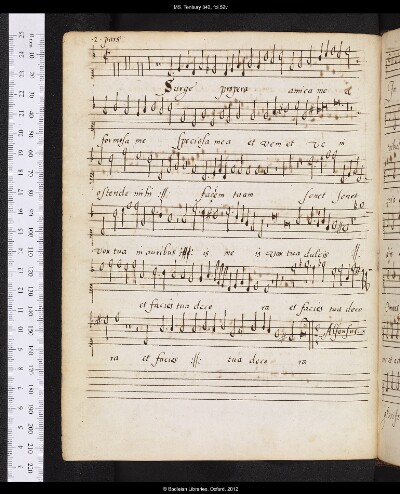 MS. Tenbury 342, fol.52v
.2. pars
Surge propera amica me a
formosa me speciosa mea et veni et ve ni
ostende mihi :||: faciem tuam sonet sonet
vox tua in auribus :||: is me is vox tua dulcis :||:
et facies tua deco ra et facies tua deco
ra et facies :||: tua deco ra
© Bodleian Libraries, Oxford, 2012